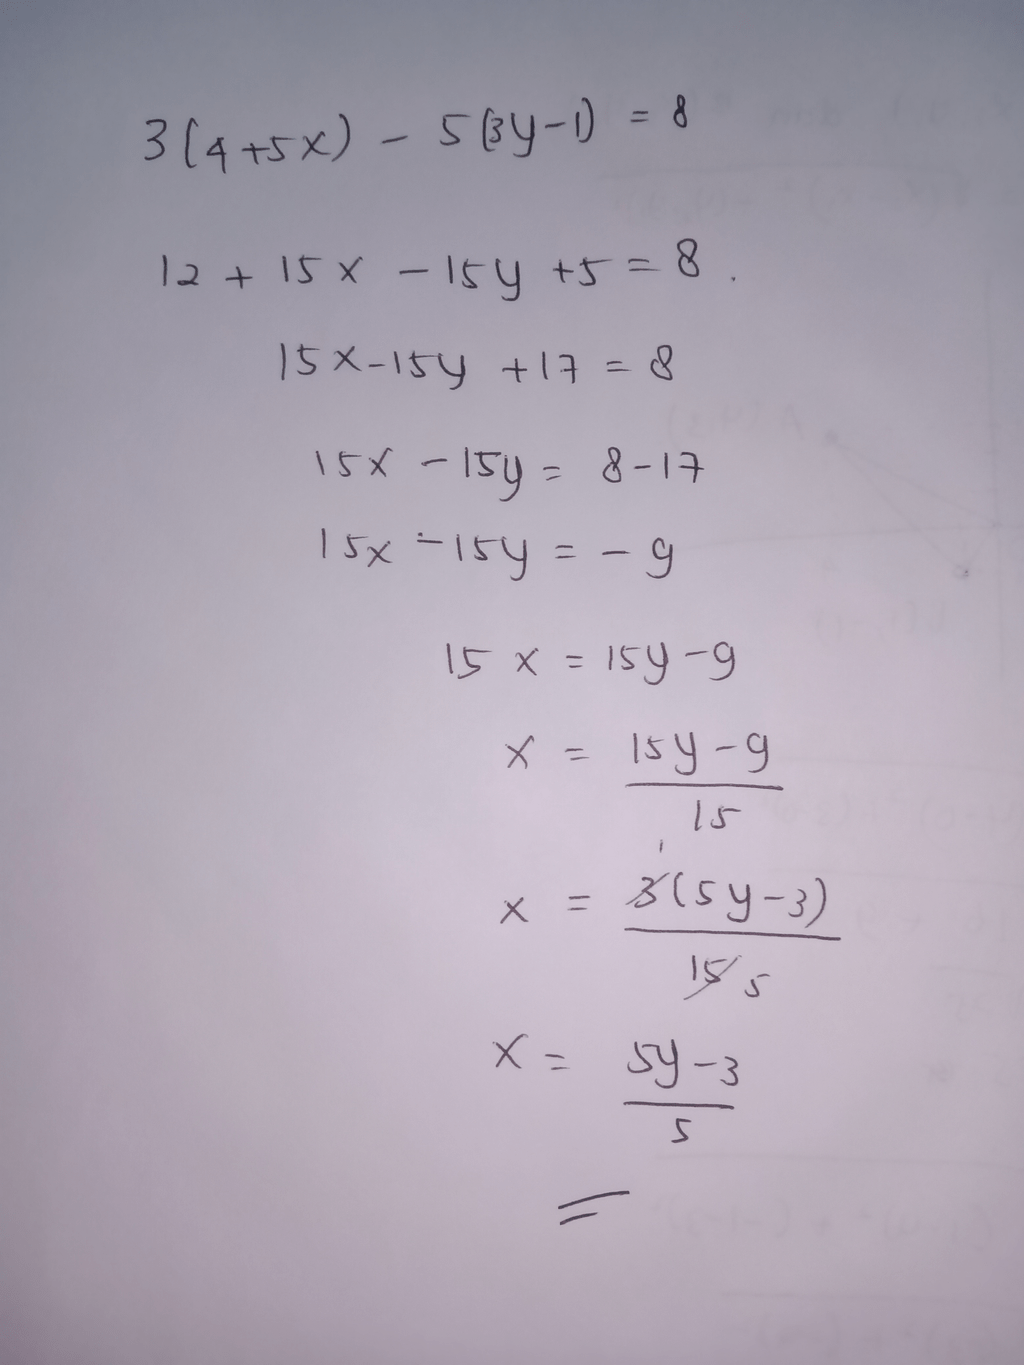 3(4+5x) - 5(3y-1) = 8
12 + 15x - 15y +5 = 8.
15x-15y +17 = 8
15x - 15y = 8-17
15x - 15y = - 9
15 x = 15y - 9
x = 15y - 9
15
1
x = 3(5y-3)
15 5
x = 5y - 3
5